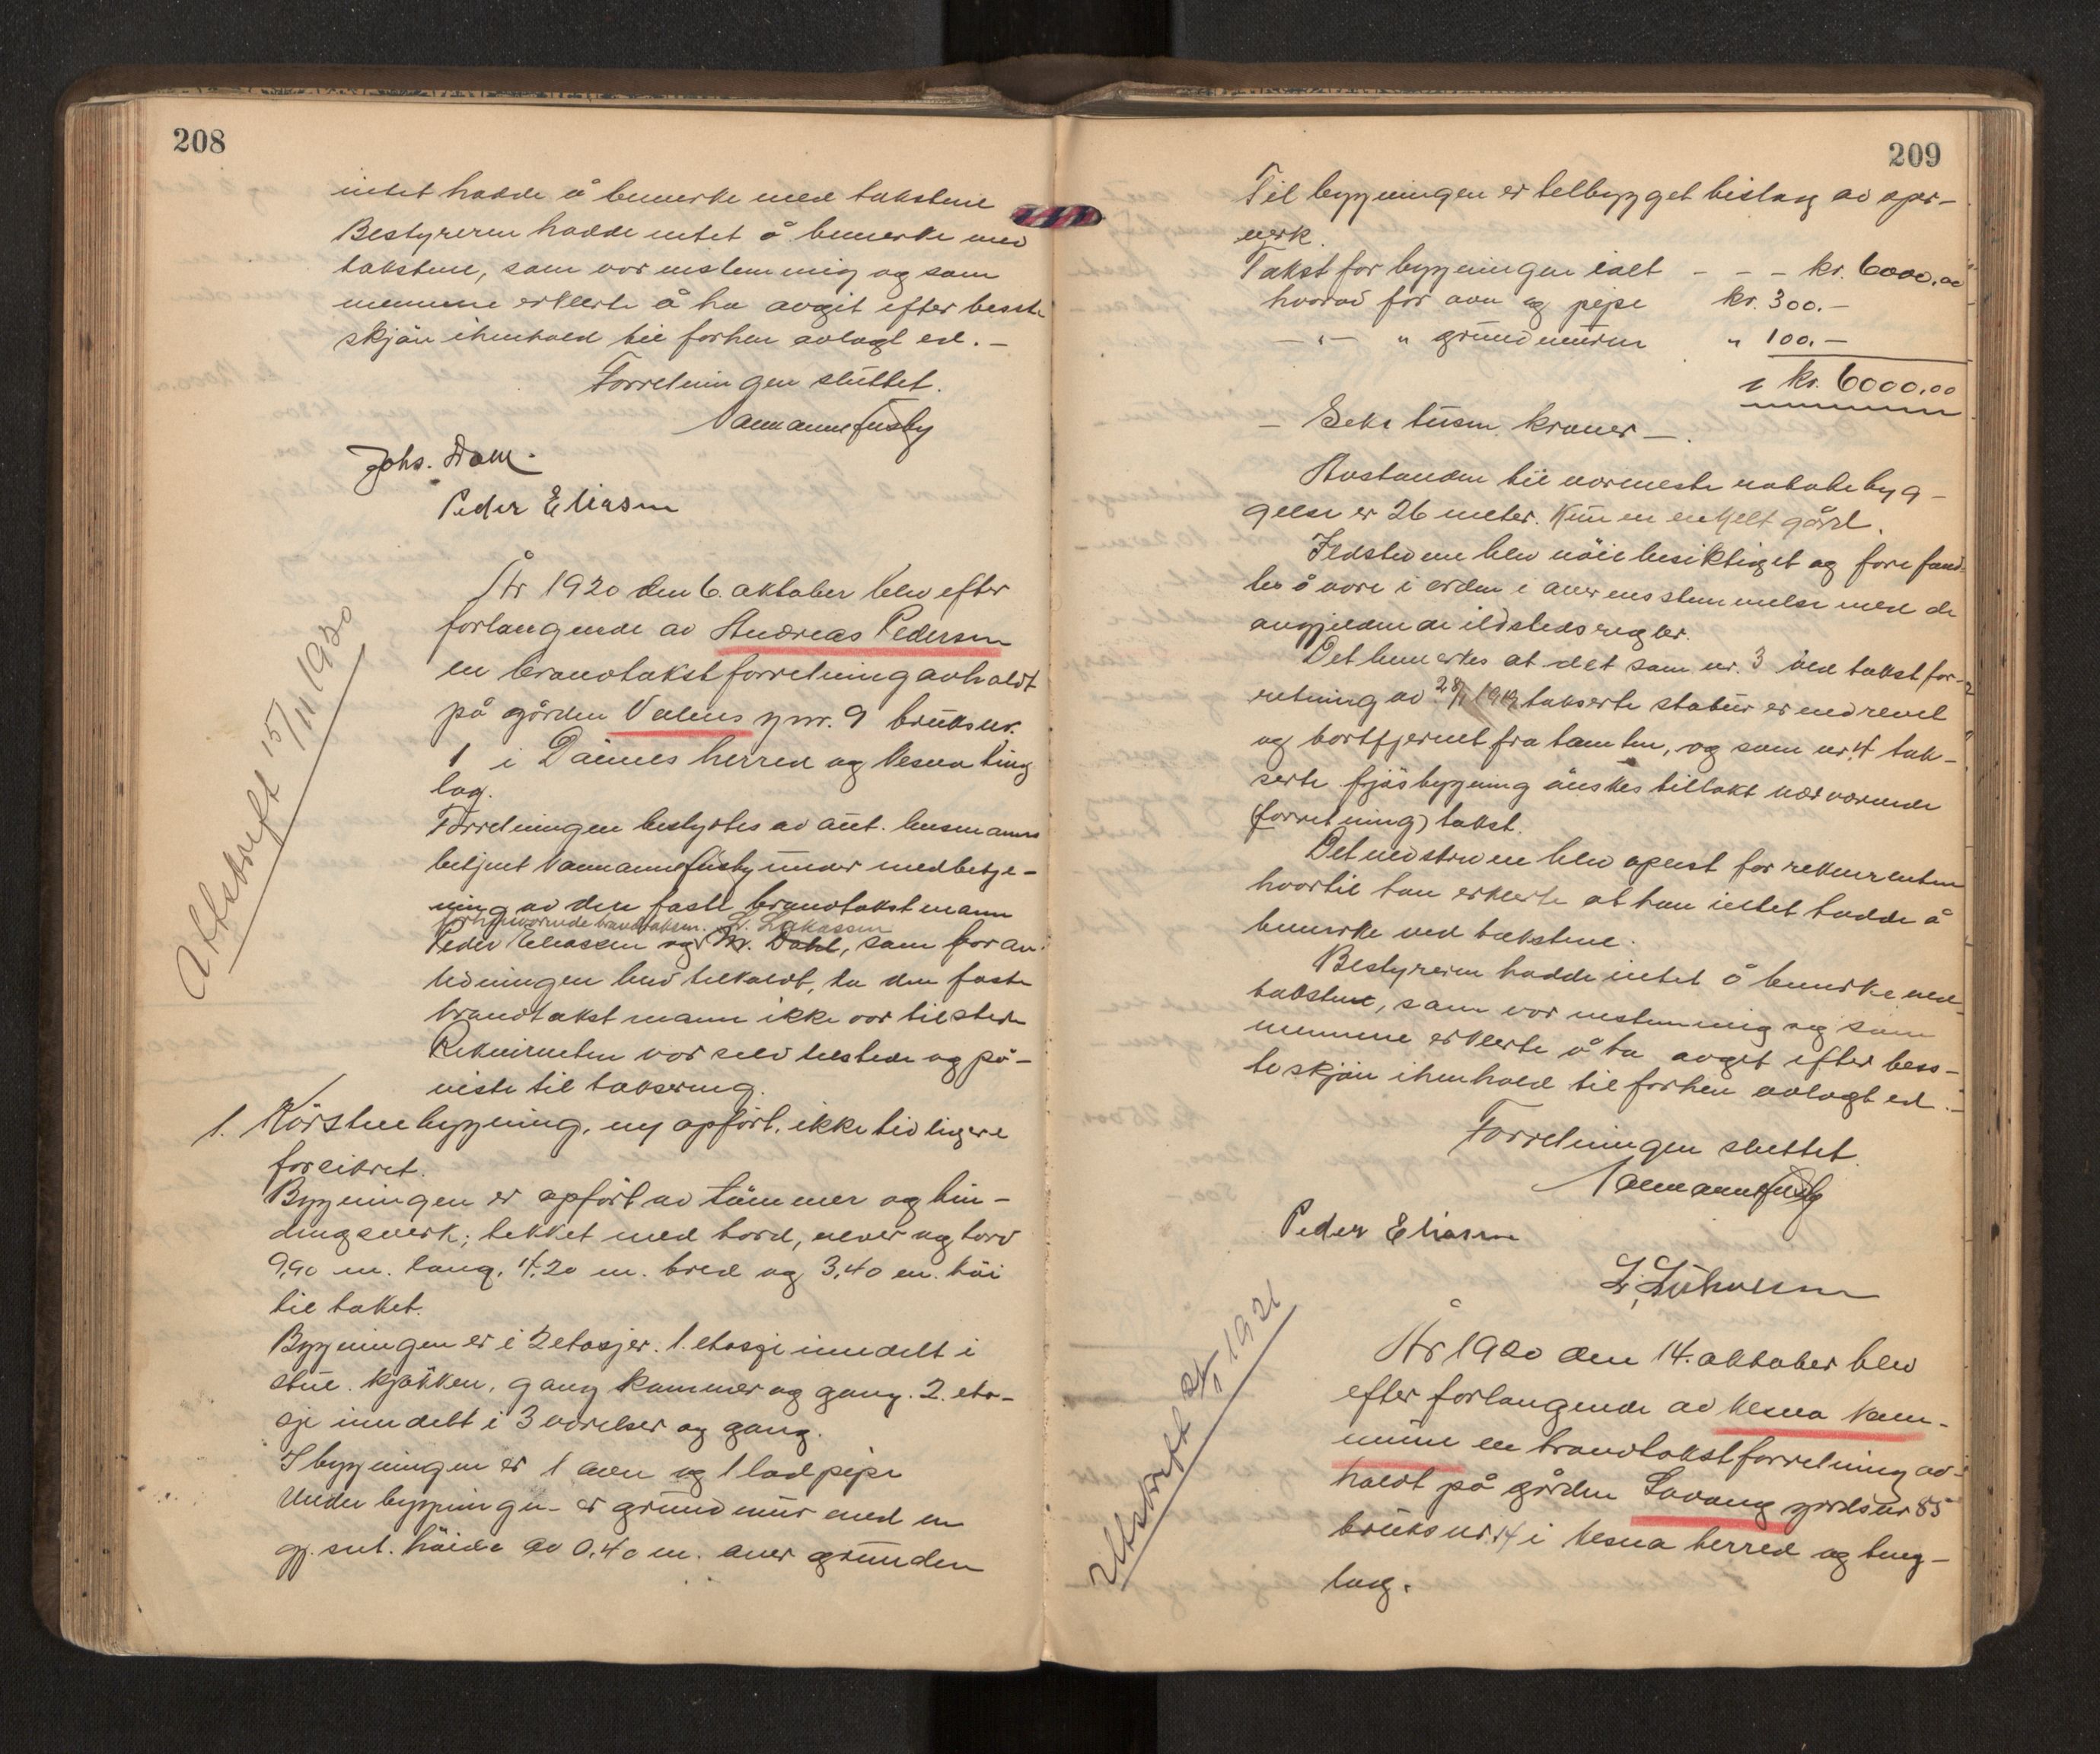 208
intet hadde å bemerke med takstene
Bestyreren hadde intet å bemerke med
takstene, som var enstemmig og som
mennene erklerte å ha avgit efter beste
skjön ihenhold til forhen avlagt ed. –
Forretningen sluttet.
Johs. Dahl.
Peder Eliasen
Utskrift 15/11 1920
År 1920 den 6. oktober blev efter
forlangende av Andreas Pedersen
en brandtakstforretning avholdt
på gården gnr. 9 bruksnr.
1 i Dönnes herred og Nesna ting
lag.
Forretningen bestyrtes av aut. lensmanns
betjent under medbetje-
ning av den faste brandtakstmann
forhenværende brandtaksm. L.
Peder Eliassen og M. Dahl, som for an-
ledningen blev tilkaldt, da den faste
brandtakstmann ikke var tilstede
Rekvirenten var selv tilstede og på-
viste til taksering.
1. bygning, ny opfört, ikke tidligere
forsikret.
Bygningen er opfört av tömmer og bin-
dingsverk; tekket med bord, never og torv
9,90 m. lang, 4,20 m. bred og 3,40 m. höi
til taket.
Bygningen er i 2 etasjer. 1. etasje inndelt i
stue. kjökken, gang kammer og gang. 2. eta-
sje inndelt i 3 værelser og gang.
I bygningen er 1 ovn og 1 pipe
Under bygningen er grundmur med en
gj. snt. höide av 0,40 m. over grunden
209
Til bygningen er tilbygget bislag av
verk.
Takst for bygningen ialt – – – kr. 6000,00
hvorav for ovn og pipe kr. 300.–
– " – " grundmuren " 100.–
kr. 6000,00
– Seks tusen kroner –.
Avstanden til nærmeste nabobebyg-
gelse er 26 meter. Kun en enkelt gård.
Ildstedene blev nöie besiktiget og forefand-
tes å være i orden i overensstemmelse med de
angjeldende ildstedsregler.
Det bemerkes at det som nr. 3 ved takstfor-
retning av takserte stabur er nedrevet
og bortfjernet fra tomten, og som nr. 4 tak-
serte fjösbygning önskes tillakt nærværende
(forretning) takst.
Det nedskrevne blev oplest for rekvirenten
hvortil han erklerte at han intet hadde å
bemerke ved takstene.
Bestyreren hadde intet å bemerke ved
takstene, som var enstemmig og som
mennene erklerte å ha avgit efter bes-
te skjön ihenhold til forhen avlagt ed. –
Forretningen sluttet.
Peder Eliasen
Utskrift 1921
År 1920 den 14. oktober blev
efter forlangende av Nesna kom-
mune en brandtakstforretning av-
holdt på gården Lovang gårdsnr 85
bruksnr. 14 i Nesna herred og ting-
lag.